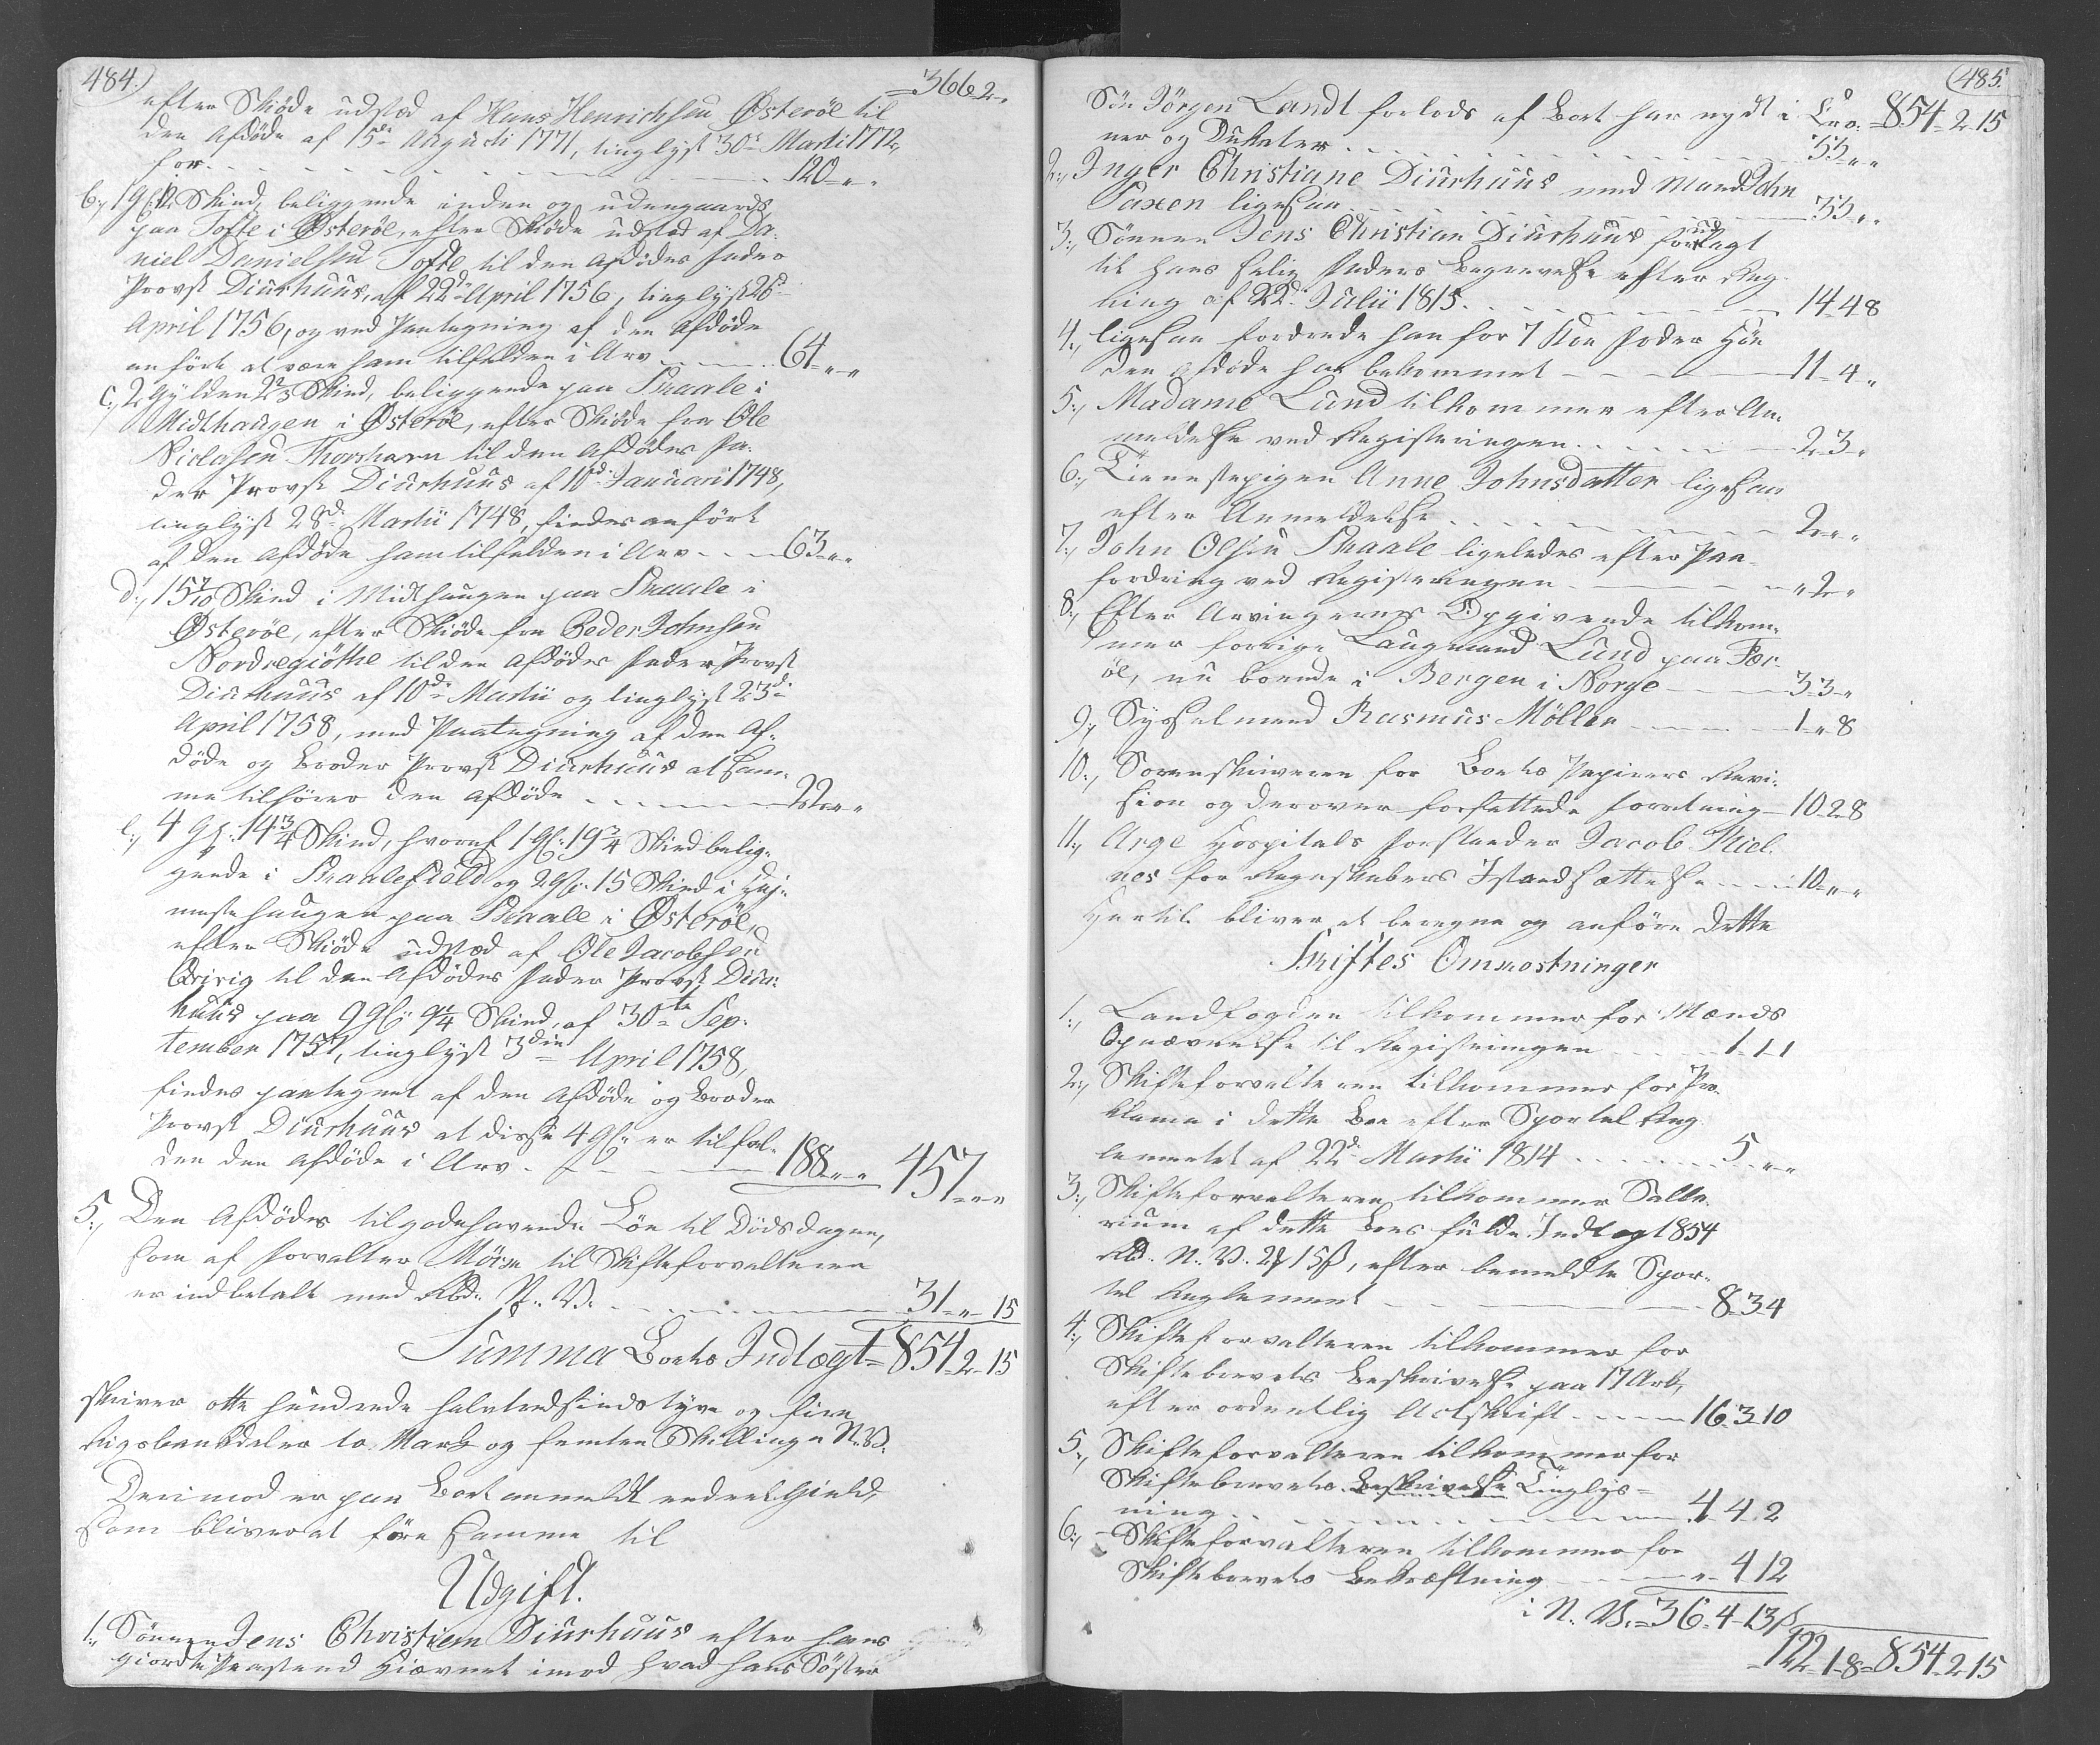 484.
366-2-"
efter Skiøde udsted af Hans Henrichsen Østerøe til
den Afdøde af 15de Augusti 1771, tinglyst 30te Martii 1772,
for - - - 120-"-"
b., 1 Gl. Skind, beliggende inden og udengaards
paa Tofte i Østerøe, efter Skiøde udsted af Da-
niel Danielsen Tofte til den Afdødes Fader
Provst Diurhuus, af 22de April 1756, tinglyst 26de
April 1756, og ved Paategning af den Afdøde
anført at være ham tilfalden i Arv - - - 64-"-"
c., 2 Gylden 2 2/3 Skind, beliggende paa Skaale i
Midthaugen i Østerøe, efter Skiøde fra Ole
Niclasen Thorshavn til den Afdødes Fa-
der Provst Diurhuus af 10de Januari 1748,
tinglyst 28de Martii 1748, findes anført
af den Afdøde ham tilfalden i Arv - - - 63-"-"
d., 15 7/10 Skind i Midthaugen paa Skaale i
Østerøe, efter Skiøde fra Peder Johnsen
Nordregiøthe til den Afdødes Fader Provst
Diurhuus af 10de Martii og tinglyst 23de
April 1758, med Paategning af den Af-
døde og Broder Provst Diurhuus at sam-
me tilhører den Afdøde - - - 22-"-"
e., 4 Gl. 14 3/4 Skind, hvoraf 1 Gl. 19 3/4 Skind belig-
gende i Skaalefield og 2 Gl. 15 Skind i
haugen paa Skaale i Østerøe,
efter Skiøde udsted af Ole Jacobsen
Qvivig til den Afdødes Fader Provst Diur-
huus paa 9 Gl. 9 1/4 Skind, af 30te Sep-
tember 1757, tinglyst 3die April 1758,
findes paategnet af den Afdøde og Broder
Provst Diurhuus at disse 4 Gl. er tilfal-
den den Afdøde i Arv - - - 188-"-" 457-"-"
5., Den Afdødes tilgodehavende Løn til Dødsdagen,
som af Forvalter Mørch til Skifteforvalteren
er indbetalt med Rbd. N. V. - - - 31-"-15
Summa Boets Indtægt = 854-2-15
skriver otte hundrede halvtredsindstyve og fire
Rigsbankdaler to Mark og femten Skilling N. V.
Derimod er paa Boet anmeldt endeel Gield,
som bliver at føre samme til
Udgift.
1., Sønnen Jens Christian Diurhuus efter hans
giorde Paastand Hiævnet imod hvad hans Søster
485.
Søn Jörgen Landt forlods af Boet har nydt i Kro- 854-2-15
ner og Dukater - - - 33-"-"
2., Inger Christiane Diurhuus med Mand John
Paxen ligesaa - - - 33-"-"
3., Sönnen Jens Christian Diurhuus for udlagt
til hans salig Faders Begravelse efter Reg-
ning af 22de Julii 1815 - - - 14-48
4., ligesaa fordrede han for 7 Koe Foder Høe
den Afdøde har bekommet - - - 11-4-"
5., Madame Lund tilkommer efter An-
meldelse ved Registeringen - - - 2-3-"
6., Tienestepigen Anne Johnsdatter ligesaa
efter Anmeldelse - - - 2-"-"
7., John Olsen Skaale ligeledes efter Paa-
fordring ved Registeringen - - - "-2-"
8., Efter Arvingernes Opgivende tilkom-
mer forrige Laugmand Lund paa Fær-
øe, nu boende i Bergen i Norge - - - 3-3-"
9., Sysselmand Rasmus Møller - - - 1-"-8
10., Sorenskriveren for Boets Papirers Revi-
sion og derover forfattede Forretning - 10-2-8
11., Arge Hospitals Forstander Jacob Niel.
nes for Regnskabers Istandsættelse - - - 10-"-"
Hertil bliver at beregne og anføre dette
Skiftes Omkostninger
1., Landfogden tilkommer for Mænds
Opnævnelse til Registeringen - - - 1-1-1
2., Skifteforvalteren tilkommer for Pro-
klama i dette Boe efter Sportel Reg-
lementet af 22de Martii 1814 - - - 5-"-"
3., Skifteforvalteren tilkommer Salla-
rium af dette Boes fulde Indtægt 854
Rbd. N. V. 2 ₰ 15 ß, efter bemeldte Spor-
tel Reglement - - - 8-3-4
4., Skifteforvalteren tilkommer for
Skiftebrevets Beskrivelse paa 17 Ark,
efter ordentlig Actskrift - - - 16-3-10
5., Skifteforvalteren tilkommer for
Skiftebrevets Beskrivelse Tinglys-
ning - - - 4-4-2
6., Skifteforvalteren tilkommer for
Skiftebrevets Bekræftning - - - "-4-12
i N. V. = 36-4-13 ß
122-1-8 = 854-2-15